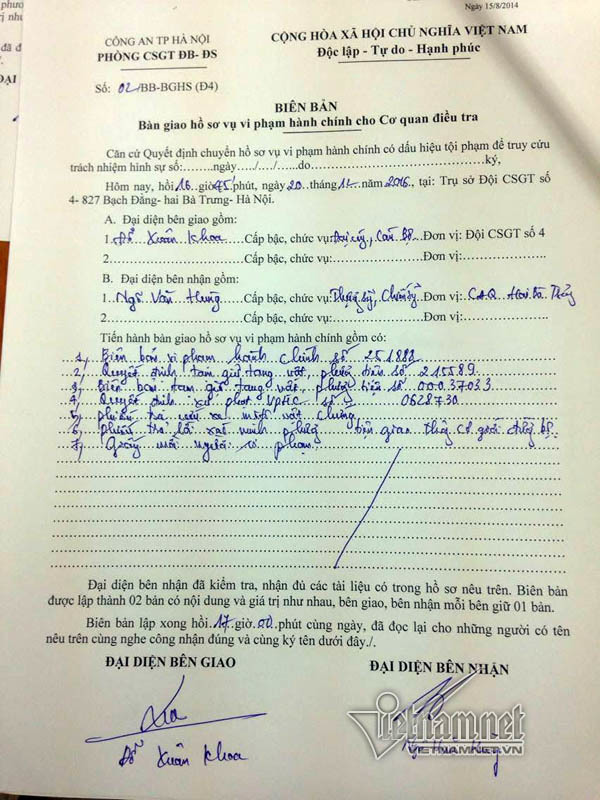 Ngày 15/8/2014
CÔNG AN TP HÀ NỘI
PHÒNG CSGT ĐB- ĐS
CỘNG HÒA XÃ HỘI CHỦ NGHĨA VIỆT NAM
Độc lập - Tự do - Hạnh phúc
Số: 02/BB-BGHS (Đ4)
BIÊN BẢN
Bàn giao hồ sơ vụ vi phạm hành chính cho Cơ quan điều tra
Căn cứ Quyết định chuyển hồ sơ vụ vi phạm hành chính có dấu hiệu tội phạm để truy cứu
trách nhiệm hình sự số:........ngày..../..../.....do................................................ký,
Hôm nay, hồi 16 giờ 45 phút, ngày 20 tháng 12 năm 2016, tại: Trụ sở Đội CSGT số
4- 827 Bạch Đằng- hai Bà Trưng- Hà Nội.
A. Đại diện bên giao gồm:
1. Đỗ Xuân Khoa Cấp bậc, chức vụ: Đại úy, Cán bộ Đơn vị: Đội CSGT số 4
2. Cấp bậc, chức vụ: Đơn vị:
B. Đại diện bên nhận gồm:
1. Ngô Văn Hưng Cấp bậc, chức vụ: Thượng sỹ, Chiến sỹ Đơn vị: CAQ Hai Bà Trưng
2. Cấp bậc, chức vụ: Đơn vị:
Tiến hành bàn giao hồ sơ vụ vi phạm hành chính gồm có:
1, Biên bản vi phạm hành chính số 251888
2, Quyết định tạm giữ tang vật, phương tiện số 215589
3, Biên bản tạm giữ tang vật, phương tiện số 00037033
4, Quyết định xử phạt VPHC số 0628730
5, phiếu tra cứu xe máy vật chứng
6, phiếu trả lời xác minh phương tiện giao thông cơ giới đường bộ
7, Giấy mời người vi phạm
Đại diện bên nhận đã kiểm tra, nhận đủ các tài liệu có trong hồ sơ nêu trên. Biên bản
được lập thành 02 bản có nội dung và giá trị như nhau, bên giao, bên nhận mỗi bên giữ 01 bản.
Biên bản lập xong hồi 17 giờ 00 phút cùng ngày, đã đọc lại cho những người có tên
nêu trên cùng nghe công nhận đúng và cùng ký tên dưới đây./.
ĐẠI DIỆN BÊN GIAO
ĐẠI DIỆN BÊN NHẬN
Đỗ Xuân Khoa
vietnamnet
VIETNAMNET.VN